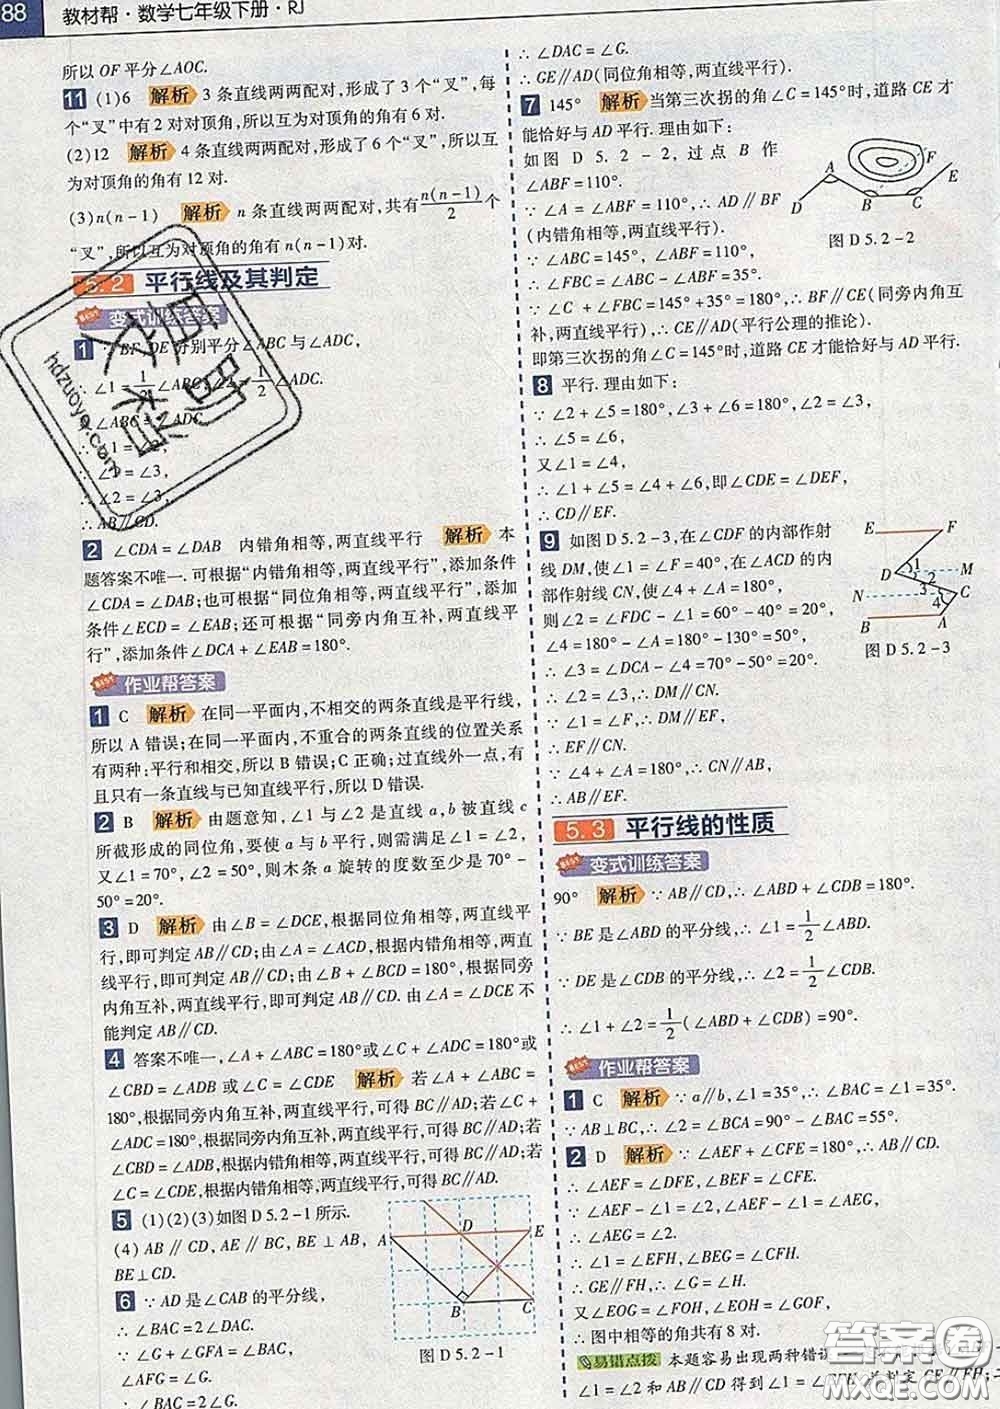 88 教材帮·数学七年级下册·RJ
所以 OF 平分∠AOC.
11 (1)6 解析 3 条直线两两配对,形成了 3 个“叉”,每
个“叉”中有 2 对对顶角,所以互为对顶角的角有 6 对.
(2)12 解析 4 条直线两两配对,形成了 6 个“叉”,所以互
为对顶角的角有 12 对.
(3)n(n-1) 解析 n 条直线两两配对,共有n(n-1)/2个
“叉”,所以互为对顶角的角有 n(n-1)对.
5.2 平行线及其判定
变式训练答案
1 ∵BF,DE 分别平分∠ABC 与∠ADC,
∴∠1=1/2∠ABC,∠2=1/2∠ADC.
∠ABC=∠ADC
∠1=∠2,
∠1=∠3,
∴∠2=∠3,
∴AB∥CD.
2 ∠CDA=∠DAB 内错角相等,两直线平行 解析 本
题答案不唯一.可根据“内错角相等,两直线平行”,添加条件
∠CDA=∠DAB;也可根据“同位角相等,两直线平行”,添加
条件∠ECD=∠EAB;还可根据“同旁内角互补,两直线平
行”,添加条件∠DCA+∠EAB=180°.
作业帮答案
1 C 解析 在同一平面内,不相交的两条直线是平行线,
所以 A 错误;在同一平面内,不重合的两条直线的位置关系
有两种:平行和相交,所以 B 错误;C 正确;过直线外一点,有
且只有一条直线与已知直线平行,所以 D 错误.
2 B 解析 由题意知,∠1 与∠2 是直线 a,b 被直线 c
所截形成的同位角,要使 a 与 b 平行,则需满足∠1=∠2,
又∠1=50°,∠2=70°,则木条 a 旋转的度数至少是 70°-
50°=20°.
3 D 解析 由∠B=∠DCE,根据同位角相等,两直线平
行,即可判定 AB∥CD;由∠A=∠ACD,根据内错角相等,两直
线平行,即可判定 AB∥CD;由∠B+∠BCD=180°,根据同旁
内角互补,两直线平行,即可判定 AB∥CD.由∠A=∠DCE 不
能判定 AB∥CD.
4 答案不唯一,∠A+∠ABC=180°或∠C+∠ADC=180°或
∠CBD=∠ADB 或∠C=∠CDE 解析 若∠A+∠ABC=
180°,根据同旁内角互补,两直线平行,可得 BC∥AD;若∠C+
∠ADC=180°,根据同旁内角互补,两直线平行,可得 BC∥AD;若
∠CBD=∠ADB,根据内错角相等,两直线平行,可得 BC∥AD;若
∠C=∠CDE,根据内错角相等,两直线平行,可得 BC∥AD.
5 (1)(2)(3)如图 D 5.2-1 所示.
(4)AB∥CD,AE∥BC,BE⊥AB,
BE⊥CD.
6 ∵AD 是∠CAB 的平分线,
∴∠BAC=2∠DAC.
∵∠G+∠GFA=∠BAC,
∠AFG=∠G.
∴∠BAC=2∠G,
A D E B C
图 D 5.2-1
∴∠DAC=∠G.
∴GE∥AD(同位角相等,两直线平行).
7 145° 解析 当第三次拐的角∠C=145°时,道路 CE 才
能恰好与 AD 平行.理由如下:
如图 D 5.2-2,过点 B 作
∠ABF=110°.
∵∠A=∠ABF=110°,∴AD∥BF
(内错角相等,两直线平行).
∵∠ABC=145°,∠ABF=110°,
∴∠FBC=∠ABC-∠ABF=35°.
∵∠C+∠FBC=145°+35°=180°,∴BF∥CE(同旁内角互
补,两直线平行),∴CE∥AD(平行公理的推论).
即第三次拐的角∠C=145°时,道路 CE 才能恰好与 AD 平行.
A F E D B C
图 D 5.2-2
8 平行.理由如下:
∵∠2+∠5=180°,∠3+∠6=180°,∠2=∠3,
∴∠5=∠6,
又∠1=∠4,
∴∠1+∠5=∠4+∠6,即∠CDE=∠DEF,
∴CD∥EF.
9 如图 D 5.2-3,在∠CDF 的内部作射
线 DM,使∠1=∠F=40°,在∠ACD 的内
部作射线 CN,使∠4+∠A=180°,
则∠2=∠FDC-∠1=60°-40°=20°,
∠4=180°-∠A=180°-130°=50°,
∴∠3=∠DCA-∠4=70°-50°=20°,
∴∠2=∠3,∴DM∥CN.
∵∠1=∠F,∴DM∥EF,
∴EF∥CN.
∵∠4+∠A=180°,∴CN∥AB,
∴AB∥EF.
E F D 1 2 M N 3 4 C B A
图 D 5.2-3
5.3 平行线的性质
变式训练答案
90° 解析 ∵AB∥CD,∴∠ABD+∠CDB=180°.
∵BE 是∠ABD 的平分线,∴∠1=1/2∠ABD.
∵DE 是∠CDB 的平分线,∴∠2=1/2∠CDB.
∴∠1+∠2=1/2(∠ABD+∠CDB)=90°.
作业帮答案
1 C 解析 ∵a∥b,∠1=35°,∴∠BAC=∠1=35°.
∵AB⊥BC,∴∠2=∠BCA=90°-∠BAC=55°.
2 D 解析 ∵∠AEF+∠CFE=180°,∴AB∥CD.
∴∠AEF=∠DFE,∠BEF=∠CFE.
∵∠AEF-∠1=∠2,∠AEF-∠1=∠AEG,
∴∠AEG=∠2.
∴∠1=∠EFH,∠BEG=∠CFH.
∴GE∥FH,∴∠G=∠H.
又∠EOG=∠FOH,∠EOH=∠GOF,
∴图中相等的角共有 8 对.
易错点拨 本题容易出现两种错误
∠1=∠2 和 AB∥CD 得到∠1=
互助作业
hdzuoye.com
答案圈
MXQE.COM